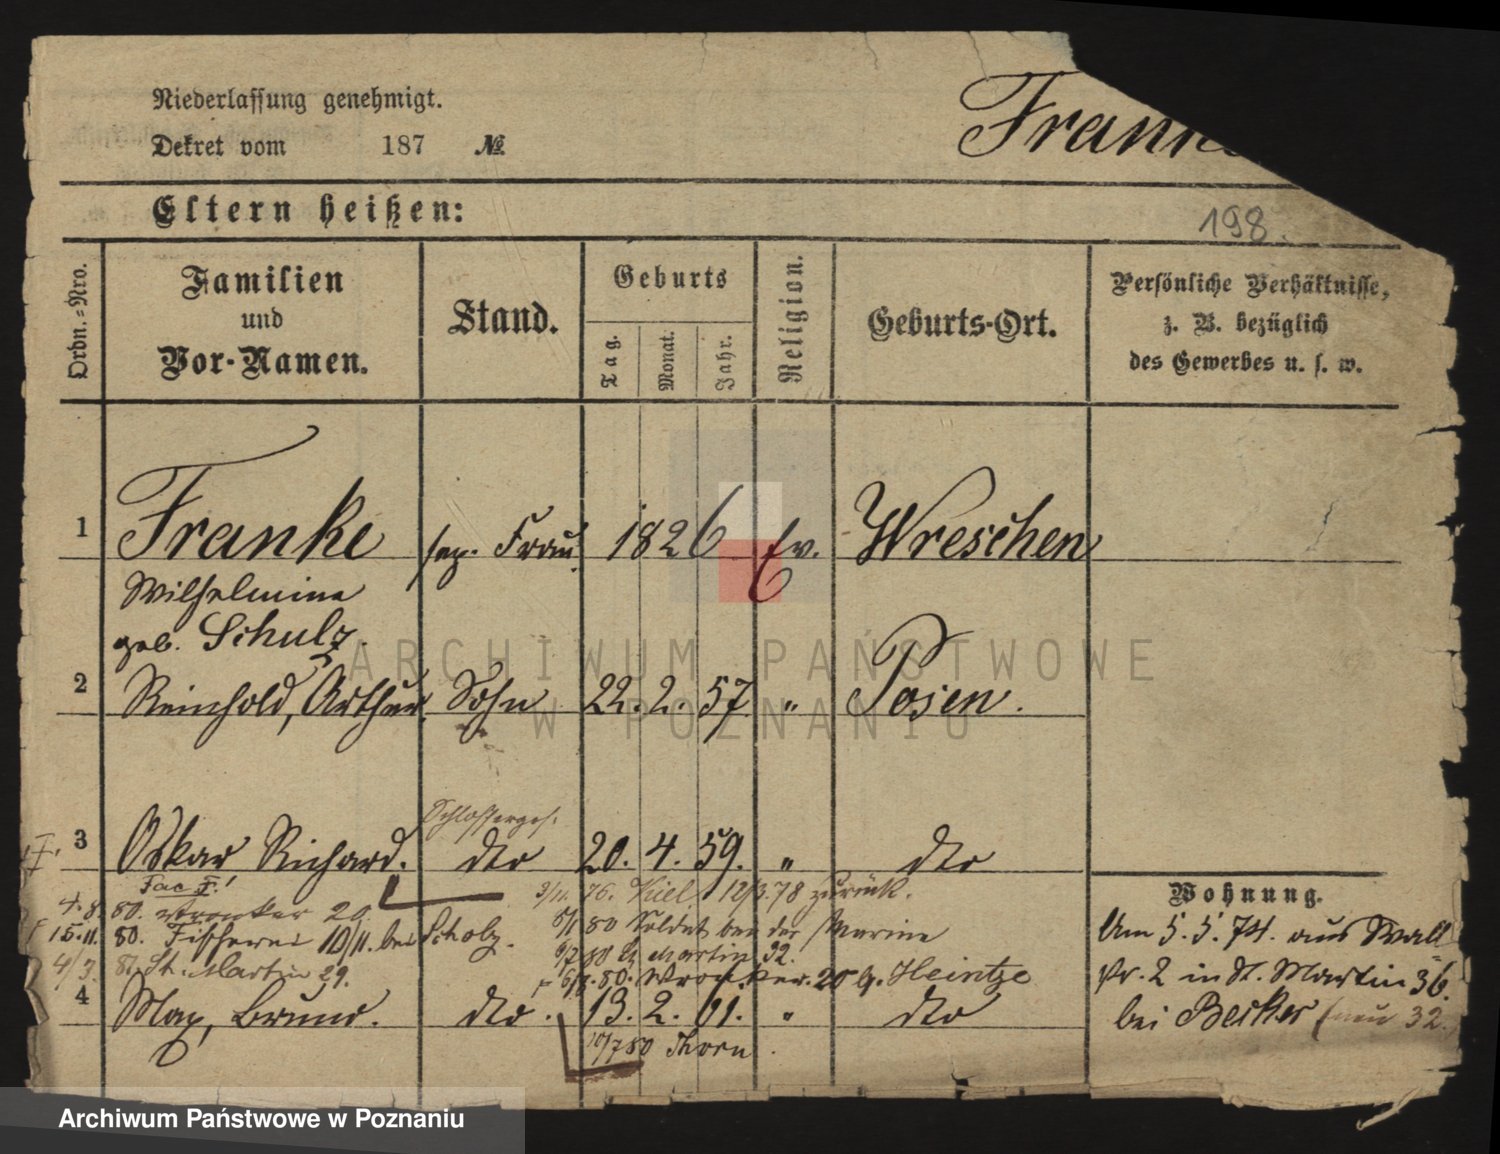 Niederlassung genehmigt.
Dekret vom 187 №
Franke
Eltern heißen:
198.
Ordn.-Nro.
Familien
und
Vor-Namen.
Stand.
Geburts
Tag.
Monat.
Jahr.
Religion.
Geburts-Ort.
Persönliche Verhältnisse,
z. B. bezüglich
des Gewerbes u. s. w.
1 Franke sep. Frau 1826 Ev. Wreschen
Wilhelmine
geb. Schulz.
2 Reinhold, Arthur. Sohn 22. 2. 57 " Posen.
Schlosserges.
3 Oskar Richard. dto 20. 4. 59. " dto
3/11. 76. Kiel 12/3. 78 zurück.
4. 8. 80. Wronker 20.
8/1 80 Soldat bei der Marine
15. 11. 80. Fischerei 10/11. bei Scholz.
9/7 80 St Martin 32.
4/3. 81. St. Martin 29.
6/8. 80. Wronker. 20 b. Heintze
4 Max, Bruno. dto. 13. 2. 61. " dto
10/7 80 Thorn.
Wohnung.
Am 5. 5. 74. aus Wall
Str. 2 in St. Martin 36.
bei Becker (neu 32.
ARCHIWUM PAŃSTWOWE
W POZNANIU
Archiwum Państwowe w Poznaniu